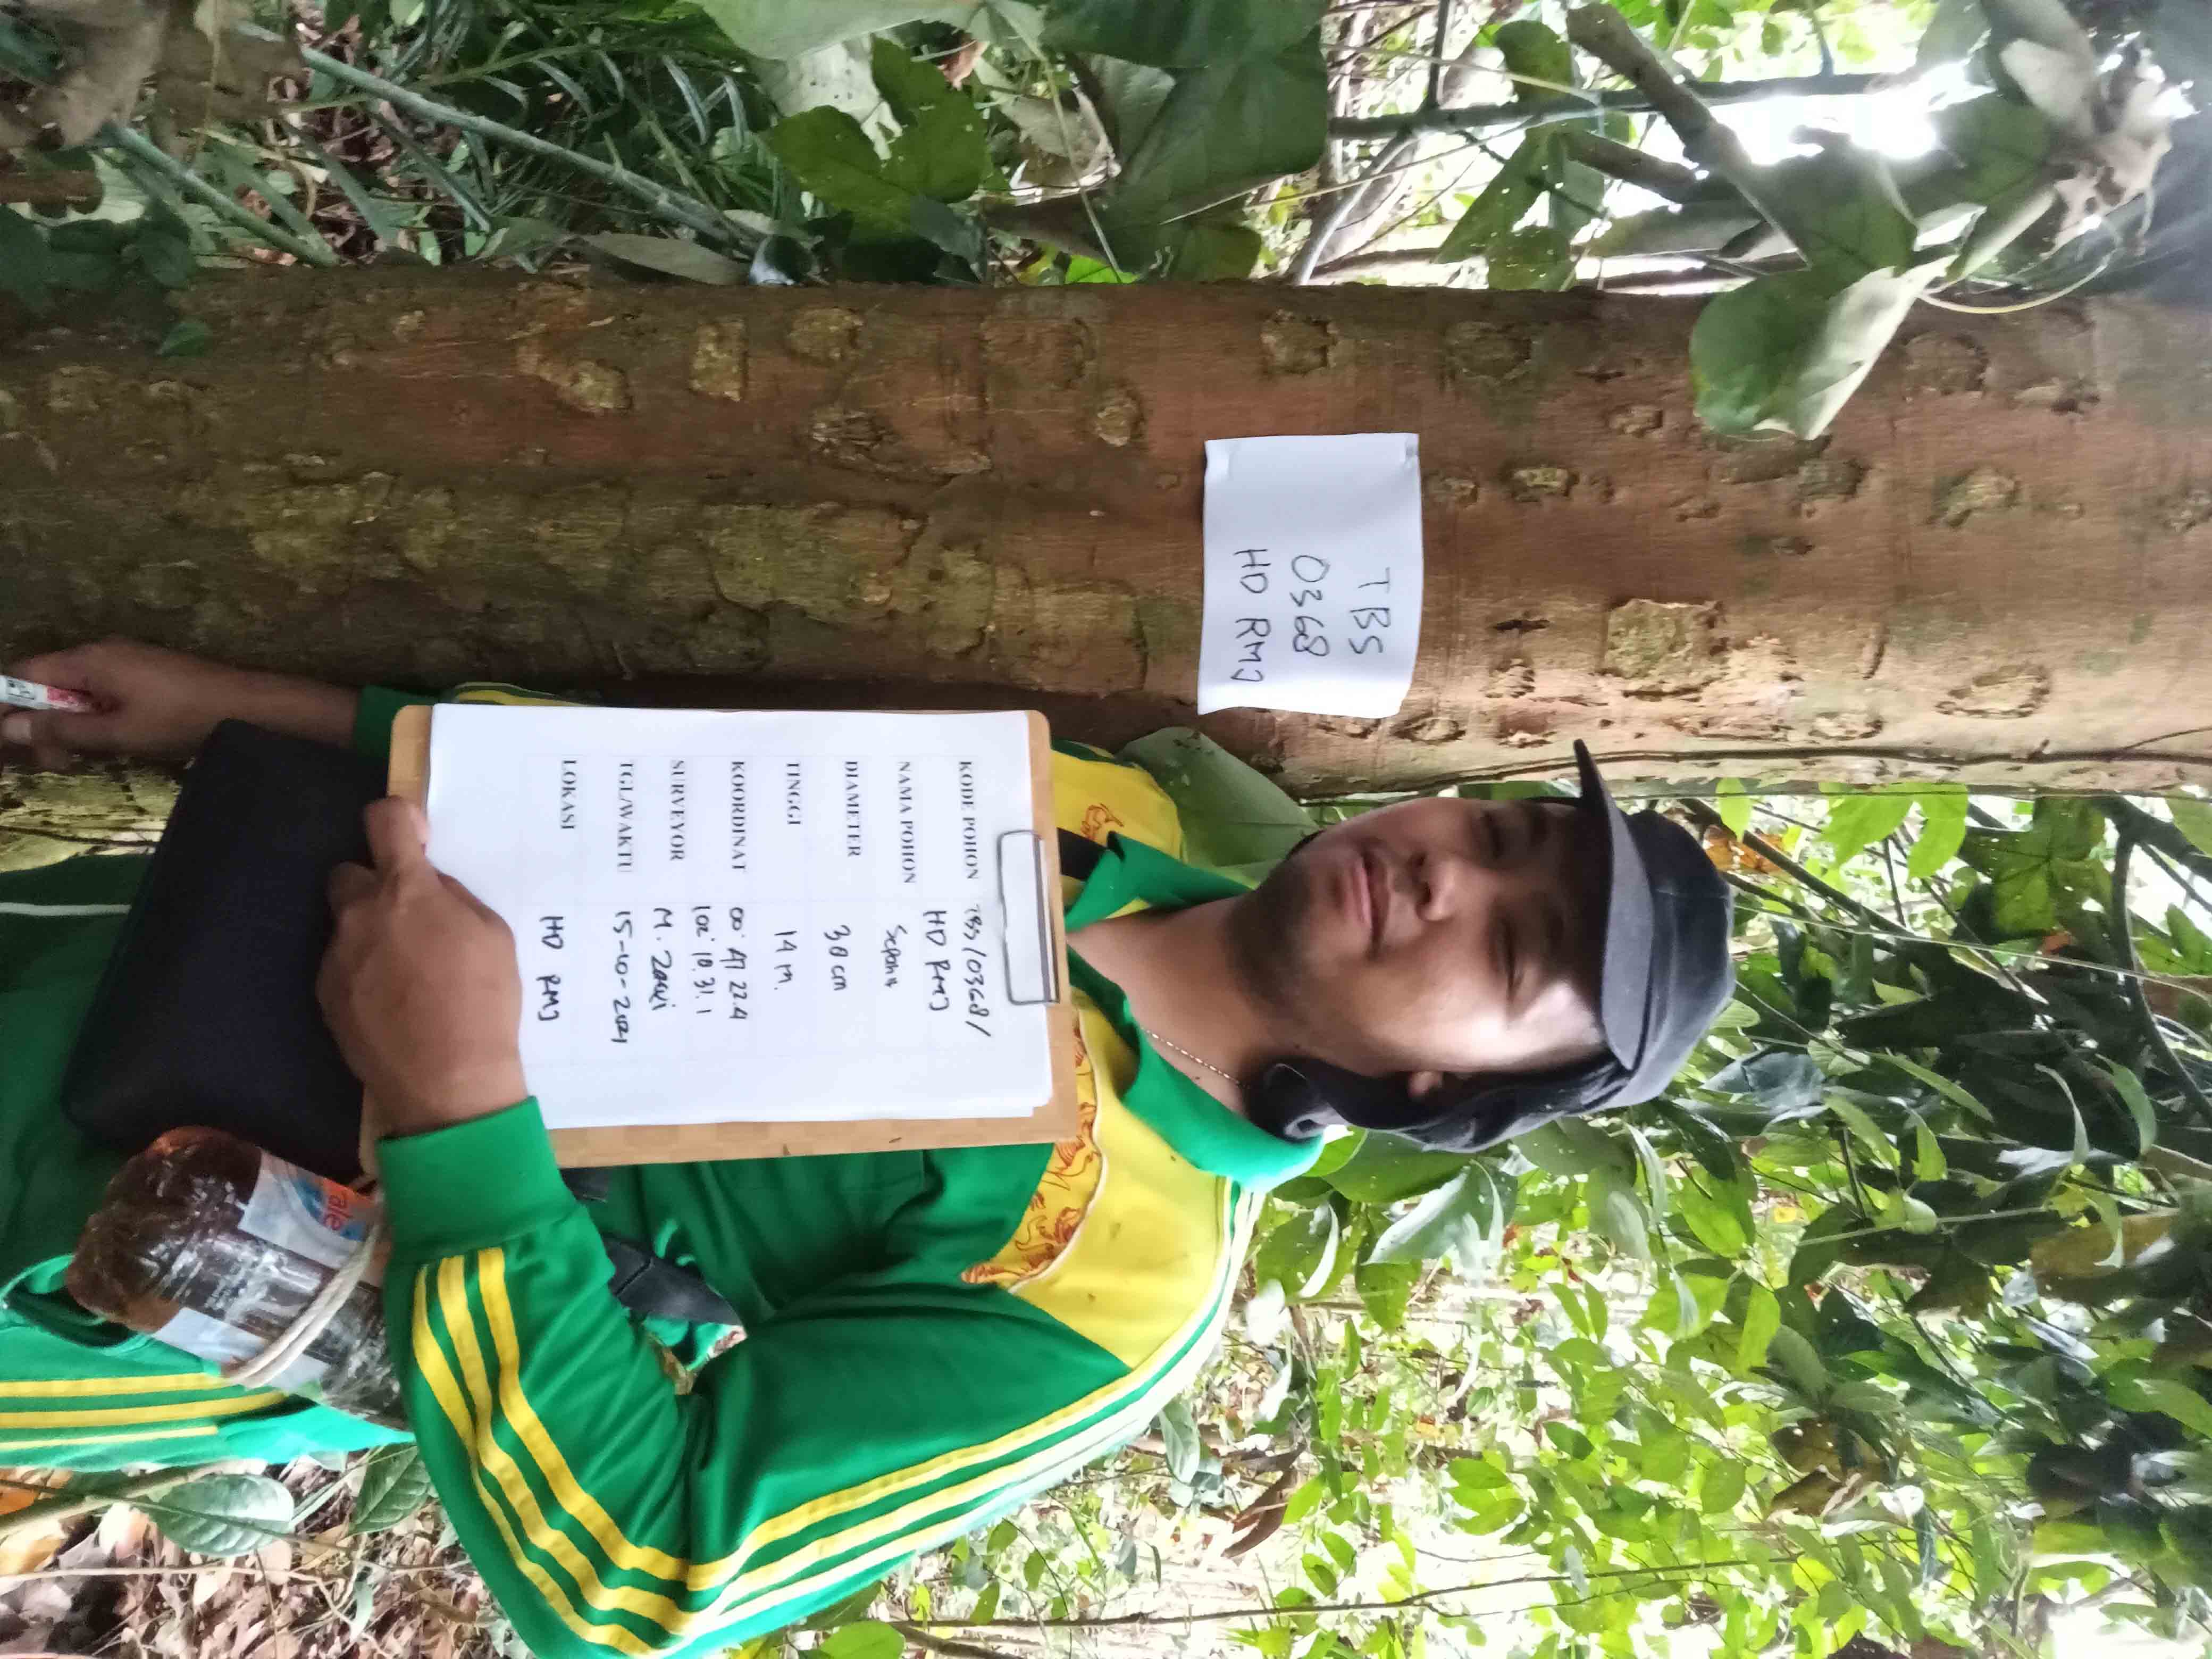 TBS
0368
HD RMJ
KODE POHON TBS/0368/
HD RMJ
NAMA POHON Sepahit
DIAMETER 38 cm
TINGGI 14 M.
KOORDINAT 00° 47 22.4
102° 10. 31. 1
SURVEYOR M. Zaqi
TGL/WAKTU 15-10-2021
LOKASI HD RMJ
rale